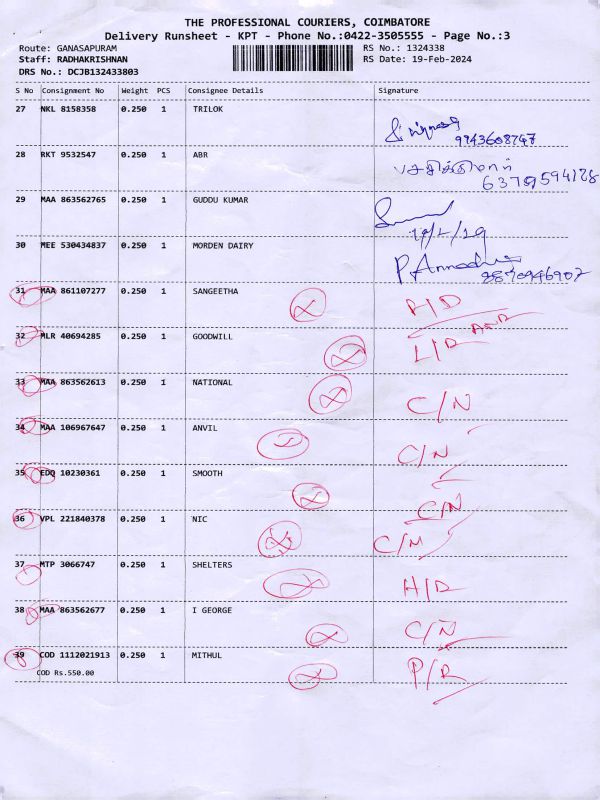 THE PROFESSIONAL COURIERS, COIMBATORE
Delivery Runsheet - KPT - Phone No.:0422-3505555 - Page No.:3
Route: GANASAPURAM RS No.: 1324338
Staff: RADHAKRISHNAN RS Date: 19-Feb-2024
DRS No.: DCJB132433803
S No Consignment No Weight PCS Consignee Details Signature
27 NKL 8158358 0.250 1 TRILOK
9943608747
28 RKT 9532547 0.250 1 ABR
29 MAA 863562765 0.250 1 GUDDU KUMAR
30 MEE 530434837 0.250 1 MORDEN DAIRY
31 MAA 861107277 0.250 1 SANGEETHA
32 MLR 40694285 0.250 1 GOODWILL
33 MAA 863562613 0.250 1 NATIONAL C/N
34 MAA 106967647 0.250 1 ANVIL C/N
35 EDQ 10230361 0.250 1 SMOOTH C/N
36 VPL 221840378 0.250 1 NIC C/N
37 MTP 3066747 0.250 1 SHELTERS
38 MAA 863562677 0.250 1 I GEORGE C/N
39 COD 1112021913 0.250 1 MITHUL P/R
COD Rs.550.00